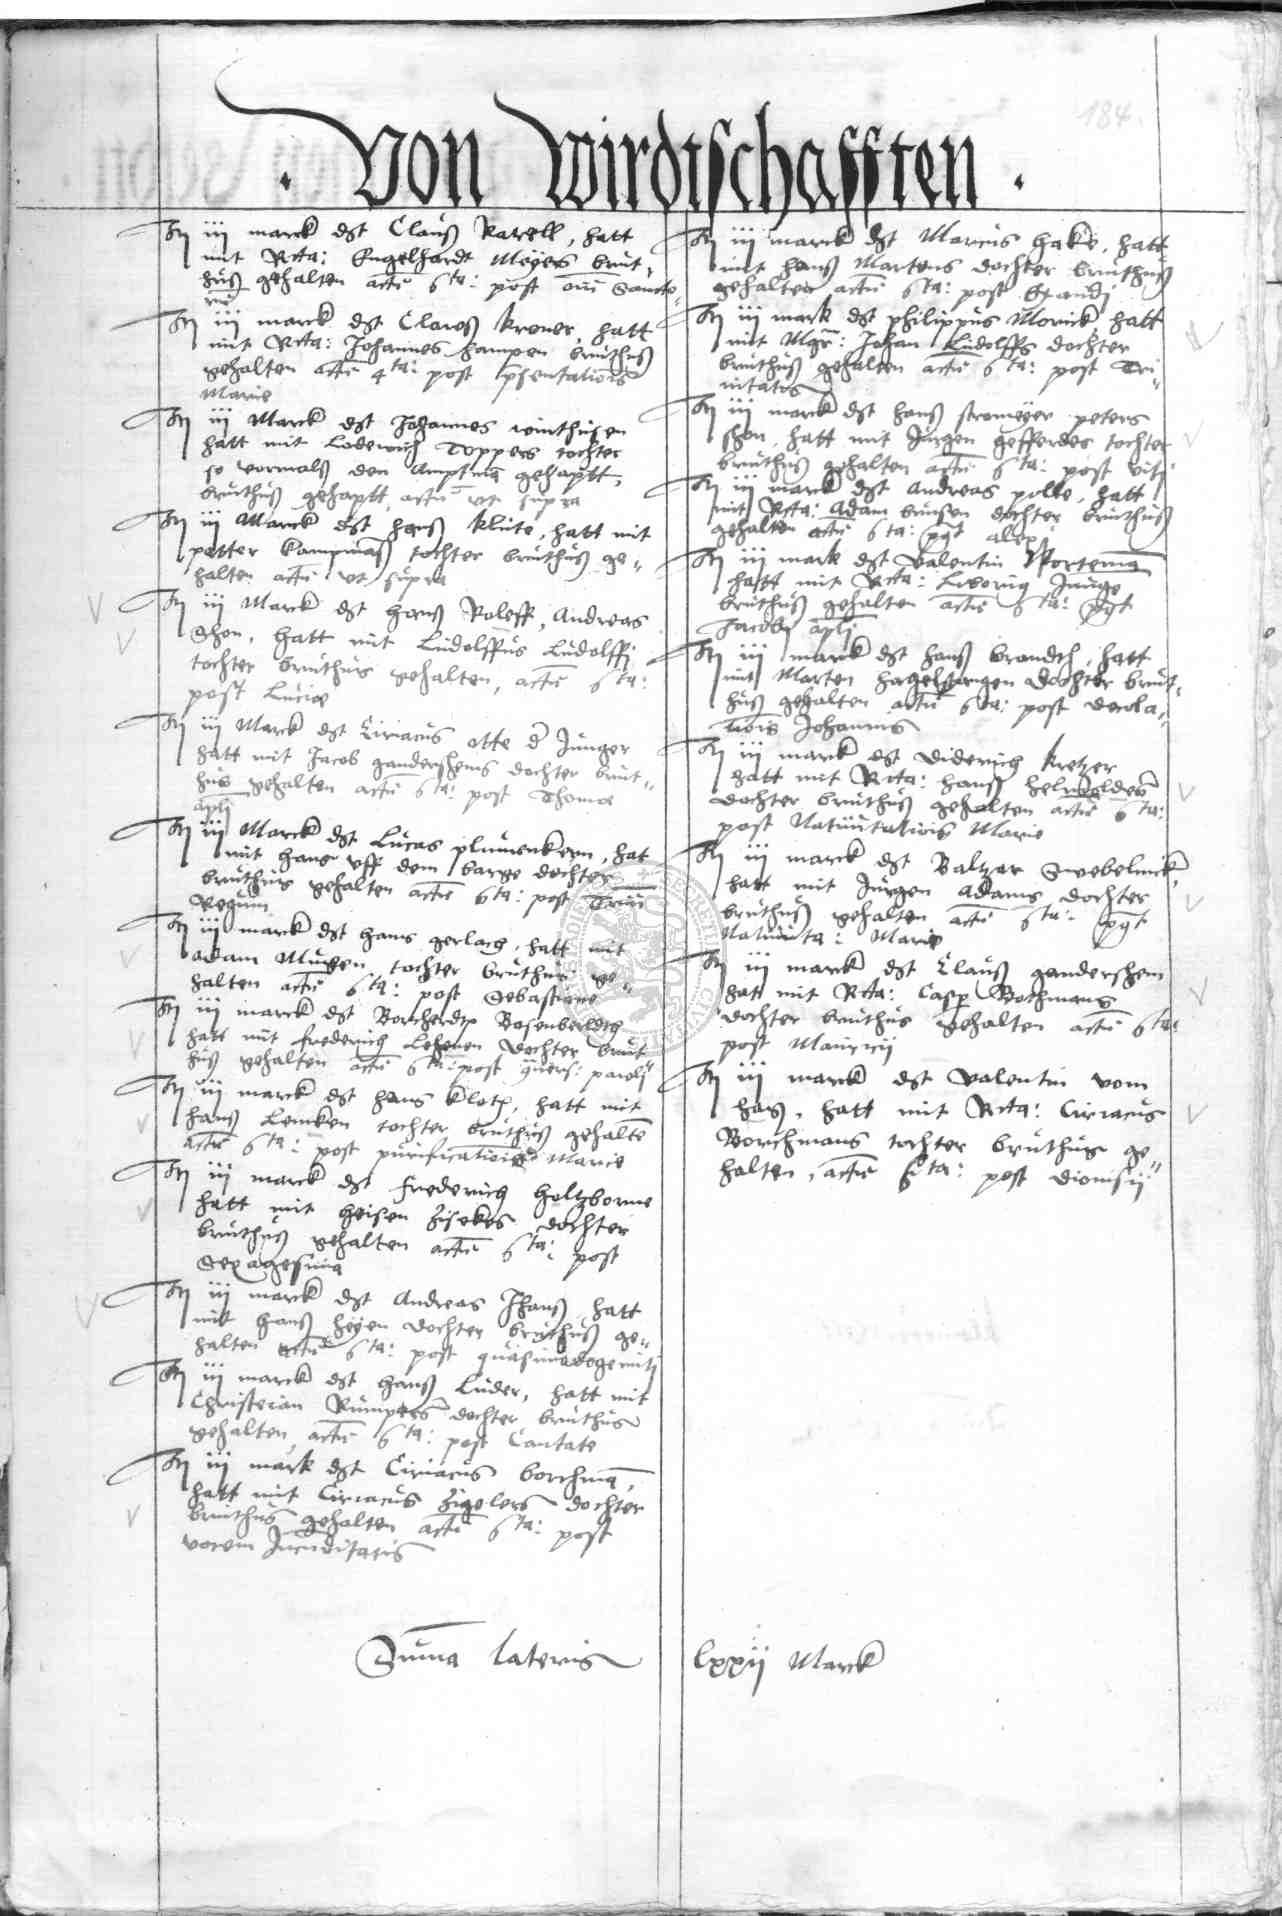 184.
Von Wirdtschafften
It iij marck dt Clauß Karell, hatt
mit Rta: Engelhardt Meyers brut¬
huß gehalten actu 6ta: post oim Sancto¬
rum
It iij marck dt Clawes kroner, hatt
mit Rta: Johannes hampen bruthuß
gehalten actu 4ta: post psentationis
Marie
It iij Marck dt Johannes winthusen
hatt mit Lodewich Toppers tochter
so vormalß den Amptma gehaptt,
bruthuß gehaptt, actu vt supra
It iij Marck dt hanß klute, hatt mit
petter kampmaß tochter bruthuß ge¬
halten actu vt supra
It iij Marck dt hanß Roleff, Andreas
Shon, hatt mit Ludolffus Ludolffj
tochter bruthus gehalten, actu 6ta:
post Lucie
It iij Marck dt Ciriacus otte d Junger
hatt mit Jacob gandershems dochter brut¬
hus gehalten actu 6ta: post Thome
apli
It iij Marck dt Lucas plumenkern, hat
mit hans vff dem barge dochter
bruthus gehalten actu 6ta: post Trium
Regum
It iij marck dt hans gerlach, hatt mit
adam Mursen tochter bruthuß ge¬
halten actu 6ta: post Sebastiane
It iij marck dt Borcherdt Bosenberldth
hatt mit frederich Lehenen dochter brut
huß gehalten actu 6ta: post 9uers: paulj
It iij marck dt hans klotz, hatt mit
hanß Lemken tochter bruthuß gehalte
actu 6ta: post purificationis Marie
It iij marck dt frederich holtzborne
hatt mit heisen Zisekes dochter
bruthuß gehalten actu 6ta: post
Sexagesima
It iij marck dt Andreas Jhanß hatt
mit hanß heyen dochter bruthuß ge¬
halten actu 6ta: post quasimodogenitj
It iij marck dt hanß Luder, hatt mit
Christeian Rumpers dochter bruthus
gehalten actu 6ta: post Cantate
It iij mark dt Ciriacus borchma,
hatt mit Ciriacus Zigelers dochter
bruthus gehalten actu 6ta: post
vocem Jucuditatis
It iij marck dt Marcus hake, hatt
mit hanß Martens dochter bruthuß
gehalten actu 6ta: post Exaudj
It iij mark dt philippus Monick, hatt
mit Mgr: Johan Ludolffs dochter
bruthuß gehalten actu 6ta: post Tri¬
nitatis
It iij marck dt hanß stromeyer peters
shon, hatt mit Jurgen gefferdes tochter
bruthuß gehalten actu 6ta: post vitj
It iij marck dt Andreas polle, hatt
mit Rta: Adam brusen dochter bruthuß
gehalten actu 6ta: pqt alexj
It iij mark dt Valentin Portema
hatt mit Rta: Liborius Junge
bruthuß gehalten actu 6ta: pqt
Jacobj aplj
It iij marck dt hanß brandth, hatt
mit Marten hagelgangen dochter brut¬
huß gehalten actu 6ta: post decola¬
tionis Johannis
It iij marck dt Diderich kretzer
hatt mit Rta: hanß helmolder
dochter bruthuß gehalten actu 6ta:
post Natiuitationis Marie
It iij marck dt Baltzar Swebelnick,
hatt mit Jurgen Adams dochter
bruthuß gehalten actu 6ta: pqt
Natiuita: Marie
It iij marck dt Clauß gandershem
hatt mit Rta: Casp Bothmans
dochter bruthus gehalten actu 6ta:
post Mauricij
It iij marck dt Valentin vom
haß, hatt mit Rta: Ciriacus
Borchmans tochter bruthus ge¬
halten, actu 6ta: post dionisij
Suma lateris lxxij Marck